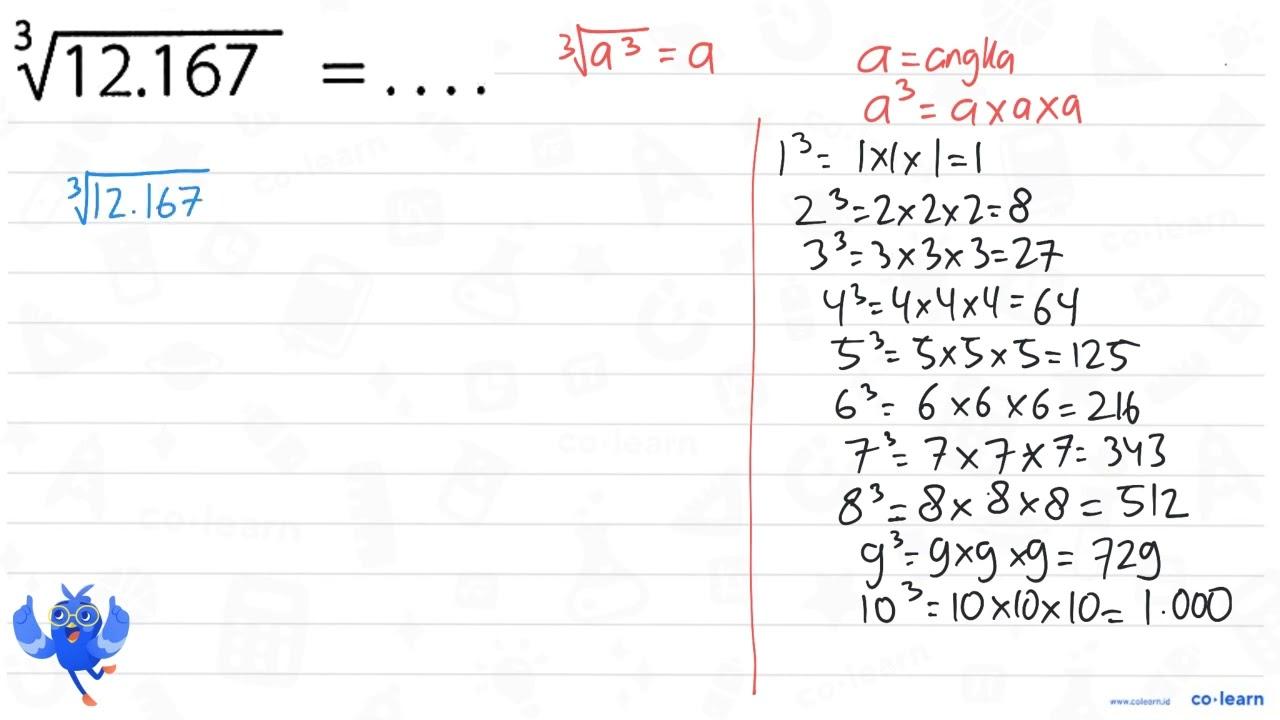 ∛12.167 = ....
∛a³ = a
a = angka
a³ = a × a × a
∛12.167
1³ = 1 × 1 × 1 = 1
2³ = 2 × 2 × 2 = 8
3³ = 3 × 3 × 3 = 27
4³ = 4 × 4 × 4 = 64
5³ = 5 × 5 × 5 = 125
6³ = 6 × 6 × 6 = 216
7³ = 7 × 7 × 7 = 343
8³ = 8 × 8 × 8 = 512
9³ = 9 × 9 × 9 = 729
10³ = 10 × 10 × 10 = 1.000
www.colearn.id co·learn